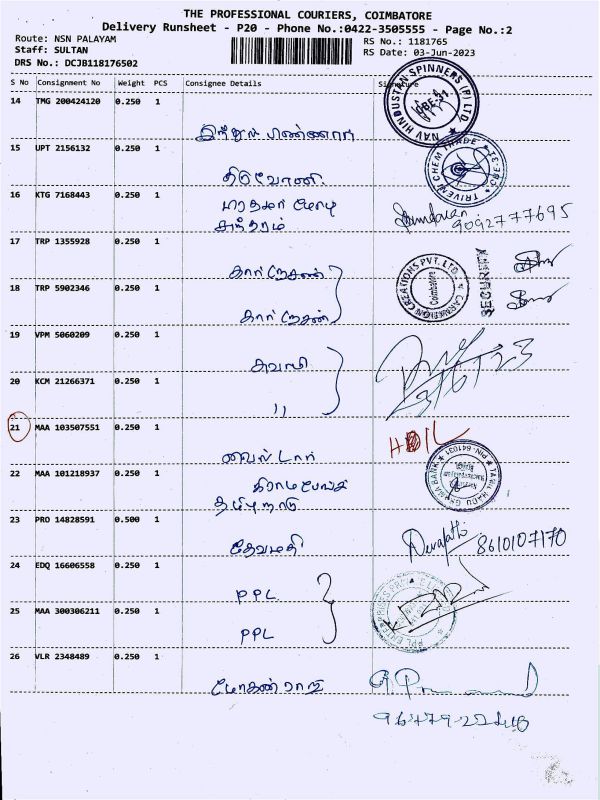 THE PROFESSIONAL COURIERS, COIMBATORE
Delivery Runsheet - P20 - Phone No.:0422-3505555 - Page No.:2
Route: NSN PALAYAM
Staff: SULTAN
DRS No.: DCJB118176502
RS No.: 1181765
RS Date: 03-Jun-2023
S No Consignment No Weight PCS Consignee Details Signature
14 TMG 200424120 0.250 1
NAV HINDUSTAN SPINNERS (P) LTD.
CBE-31
15 UPT 2156132 0.250 1
திருவோணி
TRIVENI CHEM TRADE
CBE-31
16 KTG 7168443 0.250 1
சுந்தரம்
9092777695
17 TRP 1355928 0.250 1
கார்னேசன்
CREATIONS PVT. LTD.
Coimbatore
18 TRP 5902346 0.250 1
கார்னேசன்
19 VPM 5060209 0.250 1
சுவாமி
20 KCM 21266371 0.250 1
"
21 MAA 103507551 0.250 1
22 MAA 101218937 0.250 1
கிராம பேங்க்
தமிழ்நாடு
TAMIL NADU GRAMA BANK
PIN-641031
23 PRO 14828591 0.500 1
தேவமதி
8610107170
24 EDQ 16606558 0.250 1
PPL
25 MAA 300306211 0.250 1
PPL
26 VLR 2348489 0.250 1
மோகன்ராஜ்